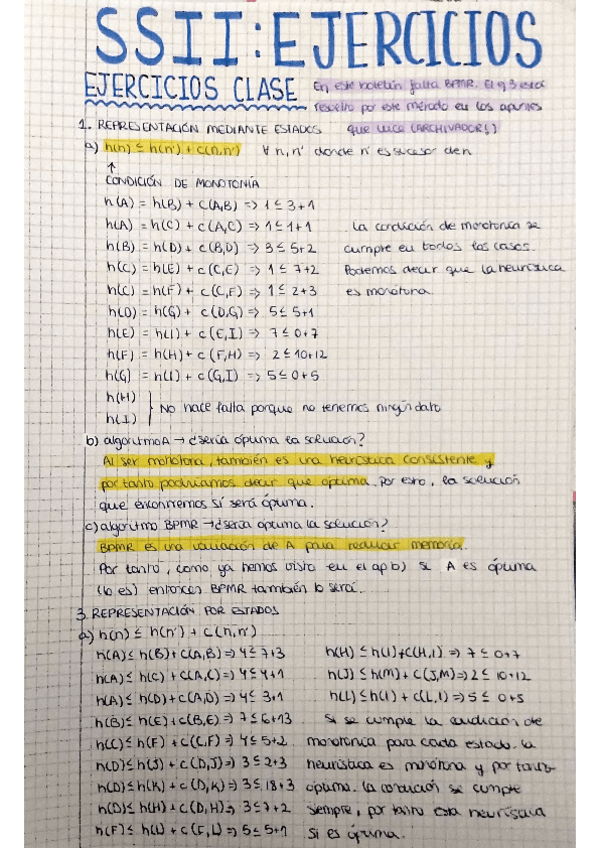 SSII: EJERCICIOS
EJERCICIOS CLASE
En este boletín falta BPMR. El ej 3 está
resuelto por este método en los apuntes
que hice (ARCHIVADOR!)
1. REPRESENTACIÓN MEDIANTE ESTADOS
a) h(n) ≤ h(n') + c(n,n') ∀ n,n' donde n' es sucesor de n
↑
CONDICIÓN DE MONOTONÍA
h(A) = h(B) + c(A,B) => 1 ≤ 3+1
h(A) = h(C) + c(A,C) => 1 ≤ 1+1
h(B) = h(D) + c(B,D) => 3 ≤ 5+2
h(C) = h(E) + c(C,E) => 1 ≤ 7+2
h(C) = h(F) + c(C,F) => 1 ≤ 2+3
h(D) = h(G) + c(D,G) => 5 ≤ 5+1
h(E) = h(I) + c(E,I) => 7 ≤ 0+7
h(F) = h(H) + c(F,H) => 2 ≤ 10+12
h(G) = h(I) + c(G,I) => 5 ≤ 0+5
h(H)
h(I)
No hace falta porque no tenemos ningún dato
La condición de monotonía se
cumple en todos los casos.
Podemos decir que la heurística
es monótona.
b) algoritmo A → ¿sería óptima la solución?
Al ser monótona, también es una heurística consistente y
por tanto podríamos decir que óptima. Por esto, la solución
que encontremos sí será óptima.
c) algoritmo BPMR → ¿sería óptima la solución?
BPMR es una variación de A para reducir memoria.
Por tanto, como ya hemos visto en el ap b) si A es óptima
(lo es) entonces BPMR también lo será.
3. REPRESENTACIÓN POR ESTADOS
a) h(n) ≤ h(n') + c(n,n')
h(A) ≤ h(B) + c(A,B) => 4 ≤ 7+3
h(A) ≤ h(C) + c(A,C) => 4 ≤ 4+1
h(A) ≤ h(D) + c(A,D) => 4 ≤ 3+1
h(B) ≤ h(E) + c(B,E) => 7 ≤ 6+13
h(C) ≤ h(F) + c(C,F) => 4 ≤ 5+2
h(D) ≤ h(J) + c(D,J) => 3 ≤ 2+3
h(D) ≤ h(K) + c(D,K) => 3 ≤ 18+3
h(D) ≤ h(H) + c(D,H) => 3 ≤ 7+2
h(F) ≤ h(L) + c(F,L) => 5 ≤ 5+1
h(H) ≤ h(I) + c(H,I) => 7 ≤ 0+7
h(J) ≤ h(M) + c(J,M) => 2 ≤ 10+12
h(L) ≤ h(I) + c(L,I) => 5 ≤ 0+5
Si se cumple la condición de
monotonía para cada estado. la
heurística es monótona y por tanto
óptima. La condición se cumple
siempre, por tanto esta heurística
si es óptima.